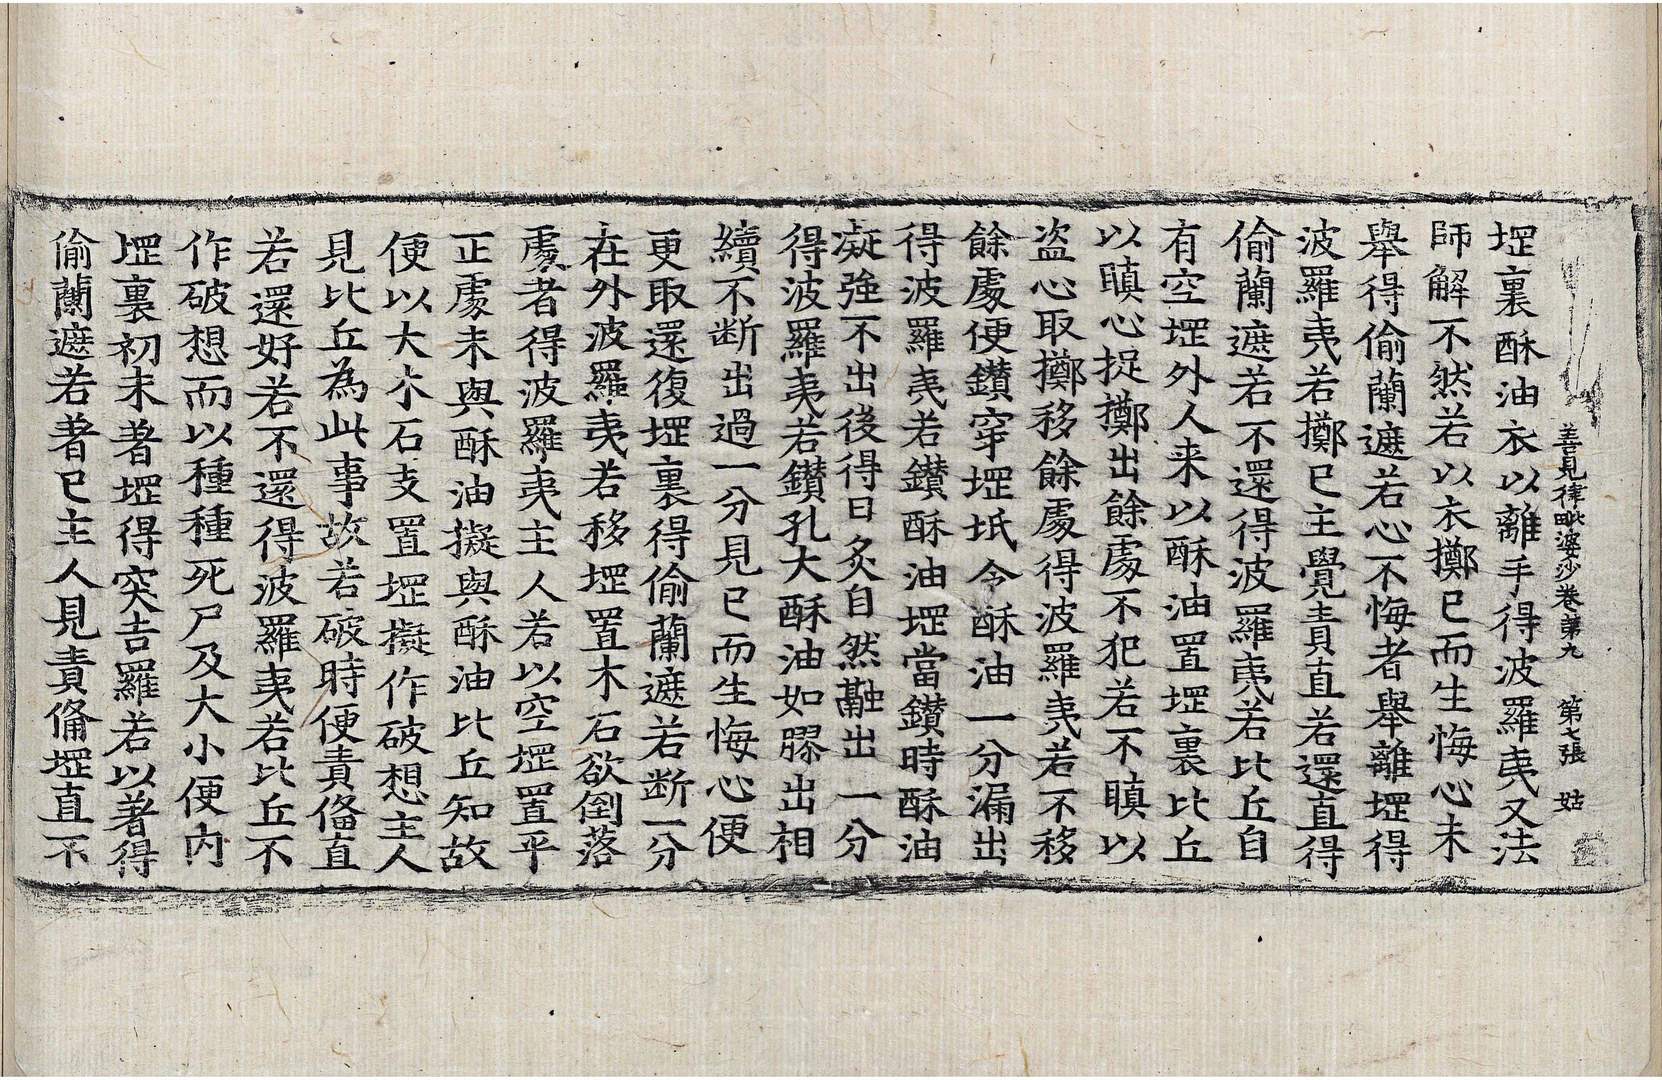 善見律毗婆沙卷第九　第七張　姑
堽裏酥油衣以離手得波羅夷又法
師解不然若以衣擲已而生悔心未
舉得偷蘭遮若心不悔者舉離堽得
波羅夷若擲已主覺責直若還直得
偷蘭遮若不還得波羅夷若比丘自
有空堽外人来以酥油置堽裏比丘
以瞋心捉擲出餘處不犯若不瞋以
盜心取擲移餘處得波羅夷若不移
餘處便鑚穿堽坻令酥油一分漏出
得波羅夷若鑚酥油堽當鑚時酥油
凝強不出後得日炙自然融出一分
得波羅夷若鑚孔大酥油如膠出相
續不断出過一分見已而生悔心便
更取還復堽裏得偷蘭遮若断一分
在外波羅夷若移堽置木石欲倒落
處者得波羅夷主人若以空堽置平
正處未與酥油擬與酥油比丘知故
便以大木石支置堽擬作破想主人
見比丘為此事故若破時便責俻直
若還好若不還得波羅夷若比丘不
作破想而以種種死尸及大小便內
堽裏初未著堽得突吉羅若以著得
偷蘭遮若著已主人見責俻堽直不